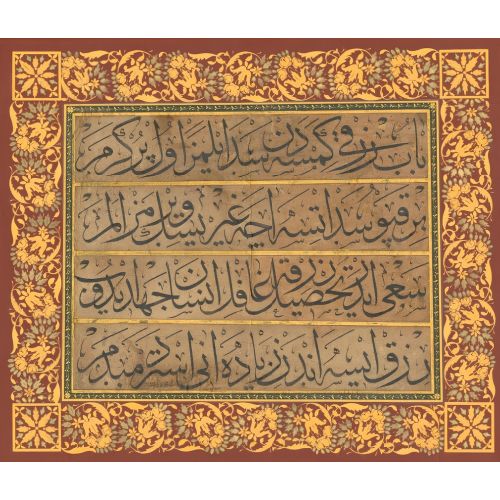 باب رزقی كمسه دن سد ایلمز اول پر كرم
بر قپو سد اتسه آچه غیریسن ویرمز الم
سعی ایدر تحصیل رزقه غافل انسان
رزق ایسه اندن زیاده انی ایستر دمبدم